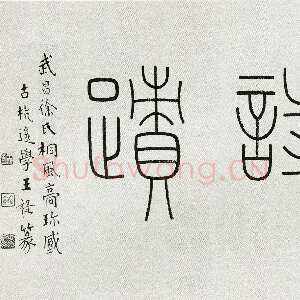 蹟
武昌徐氏桐風高珎藏
古杭後學王禔篆
Shufawang.cn